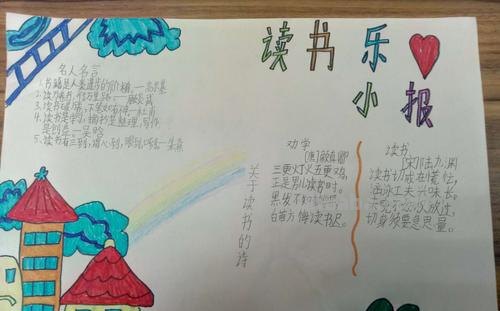 读书乐
小报
名人名言
1、书籍是人类进步的阶梯。—高尔基
2、读万卷书，行万里路。
3、读书破万卷，下笔如有神。—杜甫
4、读书是学习，摘抄是整理，写作
是创造。—吴晗
5、读书有三到，谓心到，眼到，口到。—朱熹
关于读书的诗
劝学
[唐]颜真卿
三更灯火五更鸡，
正是男儿读书时。
黑发不知
白首方悔读书迟。
读书
[宋]陆九渊
读书切戒在慌忙，
涵泳工夫兴味长。
未晓不妨权放过，
切身须要急思量。